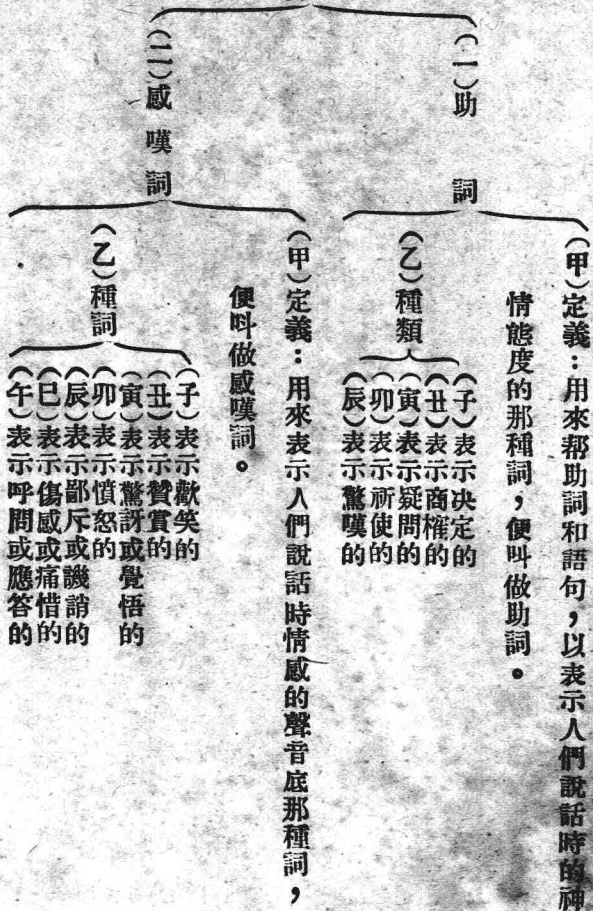 （一）助詞
（甲）定義：用來帮助詞和語句，以表示人們說話時的神
情態度的那種詞，便叫做助詞。
（乙）種類
（子）表示决定的
（丑）表示商榷的
（寅）表示疑問的
（卯）表示祈使的
（辰）表示驚嘆的
（二）感嘆詞
（甲）定義：用來表示人們說話時情感的聲音底那種詞，
便叫做感嘆詞。
（乙）種詞
（子）表示歡笑的
（丑）表示贊賞的
（寅）表示驚訝或覺悟的
（卯）表示憤怒的
（辰）表示鄙斥或譏誚的
（巳）表示傷感或痛惜的
（午）表示呼問或應答的